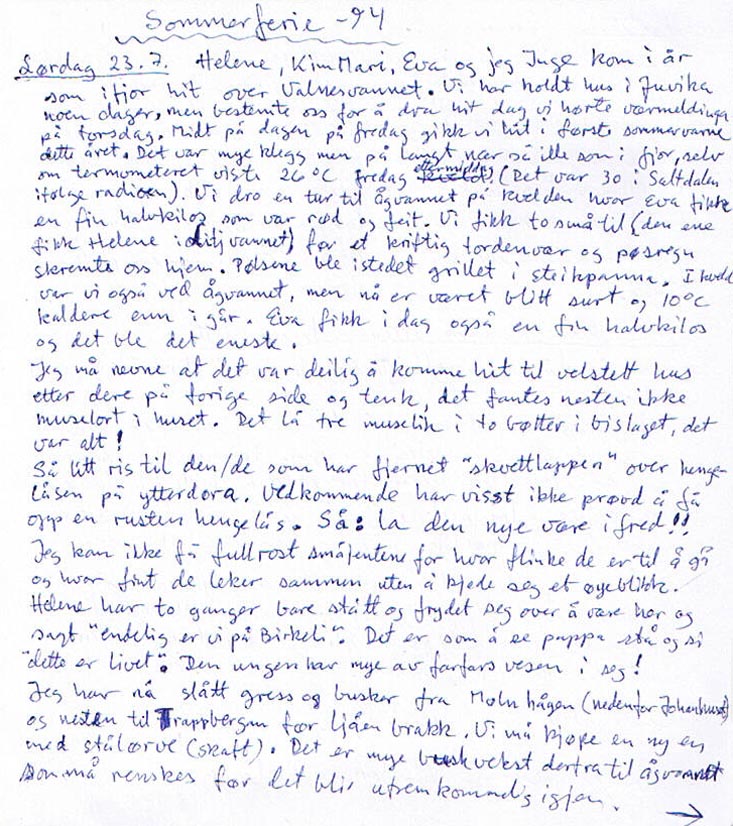 Sommerferie -94
Lørdag 23.7. Helene, Kim Mari, Eva og jeg Inge kom i år
som ifjor hit over Valnesvannet. Vi har holdt hus i Juvika
noen dager, men bestemte oss for å dra hit dag vi hørte værmeldinga
på torsdag. Midt på dagen på fredag gikk vi hit i første sommarvarme
dette året. Det var mye klegg men på langt nær så ille som i fjor, selv
om termometeret viste 26°C fredag ettermiddag (Det var 30 i Saltdalen
ifølge radioen). Vi dro en tur til ågvannet på kvelden hvor Eva fikk
en fin halvkilos som var rød og feit. Vi fikk to små til (den ene
fikk Helene i litjvannet) før et kriftig tordenvær og pøsregn
skremte oss hjem. Pølsene ble istedet grillet i steikpanna. I kveld
var vi også ved ågvannet, men nå er været blitt surt og 10°C
kaldere enn i går. Eva fikk i dag også en fin halvkilos
og det ble det eneste.
Jeg må nevne at det var deilig å komme hit til velstelt hus
etter dere på forige side og tenk, det fantes nesten ikke
muselort i huset. Det lå tre muselik i to bøtter i bislaget, det
var alt!
Så litt ris til den/de som har fjernet "skvettlappen" over henge-
låsen på ytterdøra. Vedkommende har visst ikke prøvd å få
opp en rusten hengelås. Så: la den nye være i fred!!
Jeg kan ikke få fullrost småjentene for hvor flinke de er til å gå
og hvor fint de leker sammen uten å kjede seg et øyeblikk.
Helene har to ganger bare stått og frydet seg over å være her og
sagt "endelig er vi på Birkeli". Det er som å se pappa stå og si
"dette er livet". Den ungen har mye av farfars vesen i seg!
Jeg har nå slått gress og busker fra Moln hågen (nedenfor Johanhuset)
og nesten til Trappbergan før ljåen brakk. Vi må kjøpe en ny en
med stålorve (skaft). Det er mye buskvekst derfra til ågvannet
som må renskes før det blir utfremkommelig igjen.
→